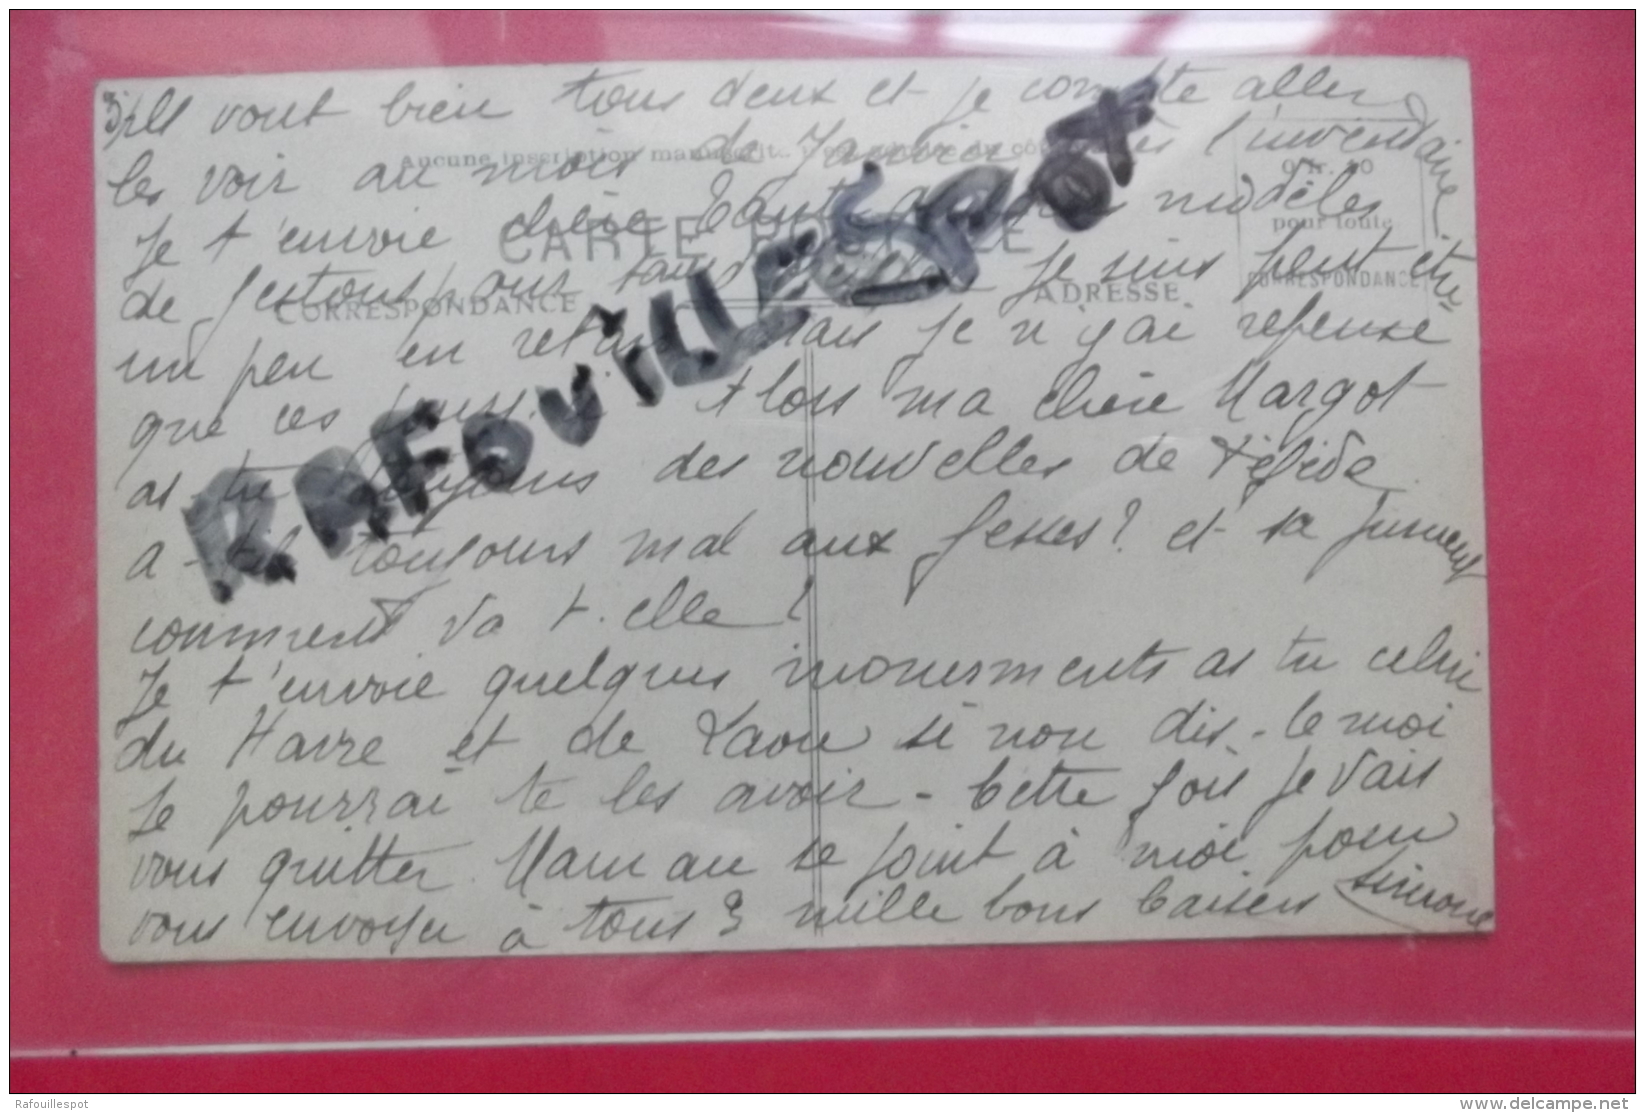 3) Ils vont bien tous deux et je compte aller
les voir au mois de Janvier après l'inventaire
Je t'envoie chère Tante modèles
de festons pour Je suis peut être
un peu en retard mais je n'y ai repensé
que ces jours. Alors ma chère Margot
as-tu toujours des nouvelles de
a-t-il toujours mal aux fesses? et sa jument
comment va t-elle?
Je t'envoie quelques monuments as tu celui
du Havre et de Laon si non dis-le moi
Je pourrai te les avoir - Cette fois je vais
vous quitter. Maman se joint à moi pour
vous envoyer à tous 3 mille bons baisers Simone
Aucune inscription manuscrite du côté
CARTE POSTALE
CORRESPONDANCE
ADRESSE
pour toute
CORRESPONDANCE
RAFOUILLESPOT
Rafouillespot
delcampe.net